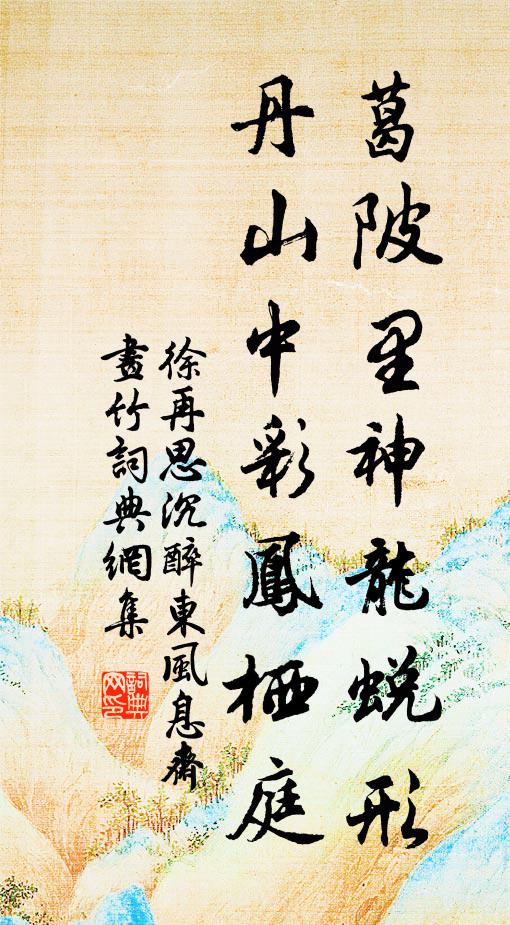 葛陂里神龍蜕形
丹山中彩鳳栖庭
徐再思沉醉東風息齋
畫竹詞典網集
詞典
网印